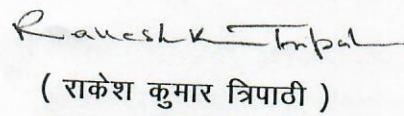 Rakesh K Tripathi
( राकेश कुमार त्रिपाठी )